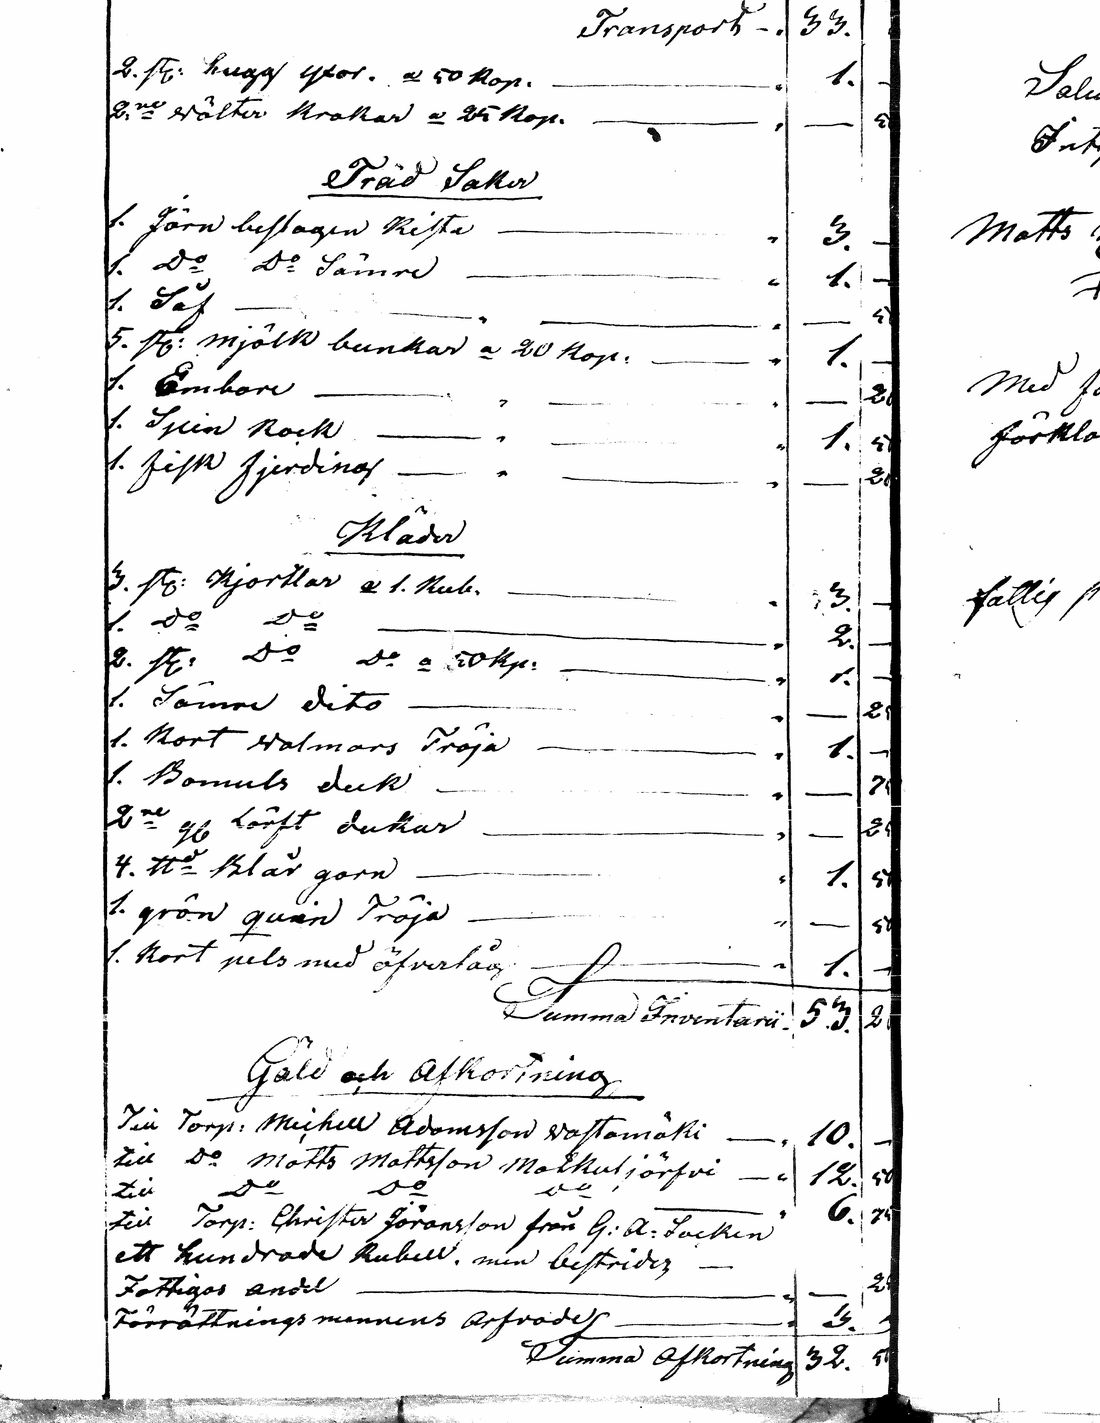 Transport - " 33.
2. st: hugg yxor. a 50 Kop. " 1. —
2ne wälter Krokar a 25 Kop. " — 5
Träd Saker
1. Järn beslagen Kista " 3. —
1. Do Do Sämre " 1. —
1. Så " — 5
5. st: mjölk bunkar a 20 Kop: " 1. —
1. Embare " — 2
1. Spin Rock " 1. 5
1. fisk fjerding " — 2
Kläder
3. st: Kjortlar a 1. Rub. " 3. —
1. Do Do " 2. —
2. st: Do Do a 50 Kp: " 1. —
1. Sämre dito " — 2
1. Kort walmars Tröja " 1. —
1. Bomuls duk " — 7
2ne Lärft dukar " — 2
4. Blår garn " 1. 5
1. grön Tröja " — 5
1. Kort pels med öfvertåg " 1. —
Summa Inventarii 53. 2
Gäld och Afkortning
Till Torp: Michell Adamsson wastamäki " 10. —
till Do Matts Mattsson " 12. 50
till Do Do Do " 6. 7
till Torp: Christer Göransson från G: A: Socken
ett hundrade Rubell. men bestrides —
Fattigas andel " — 2
Förrättningsmennens Arfvode " 3. —
Summa Afkortning 32. 5
Matts
Med
förkla
fattig